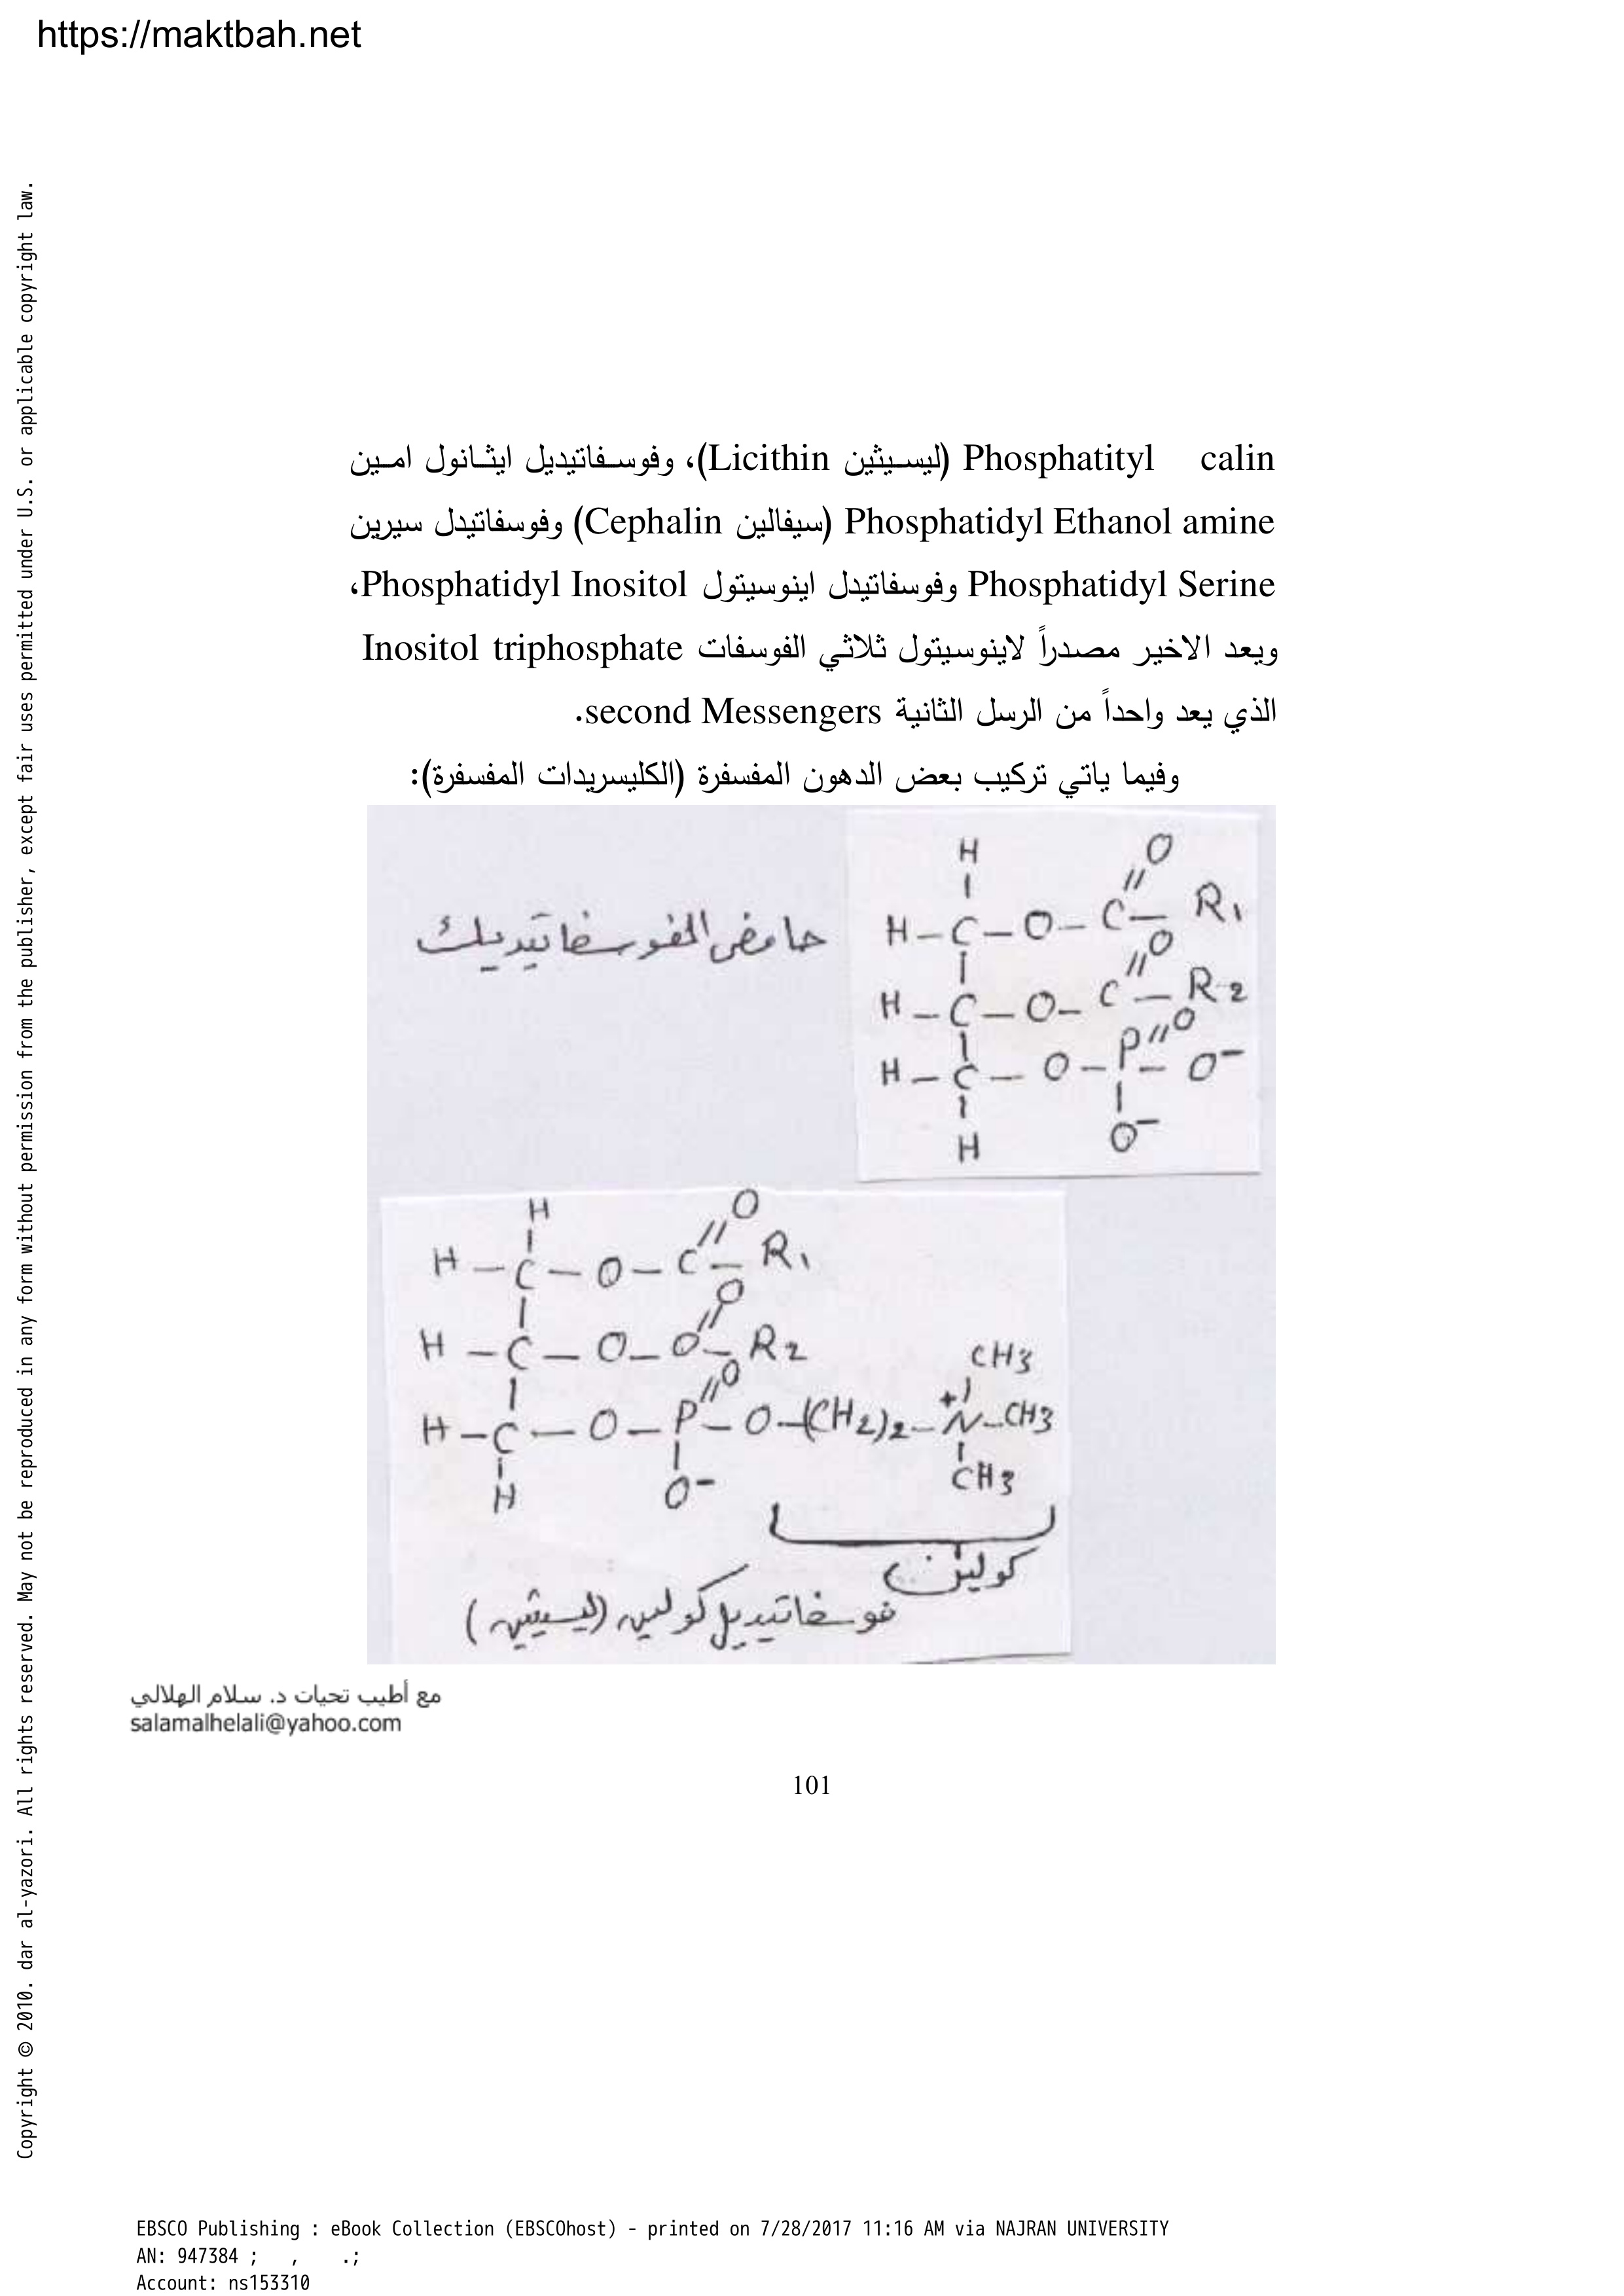 https://maktbah.net
Copyright © 2010. dar al-yazori. All rights reserved. May not be reproduced in any form without permission from the publisher, except fair uses permitted under U.S. or applicable copyright law.
Phosphatityl calin (ليسيثين Licithin)، وفوسفاتيديل ايثانول امين
Phosphatidyl Ethanol amine (سيفالين Cephalin) وفوسفاتيدل سيرين
Phosphatidyl Serine وفوسفاتيدل اينوسيتول Phosphatidyl Inositol،
ويعد الاخير مصدراً لاينوسيتول ثلاثي الفوسفات Inositol triphosphate
الذي يعد واحداً من الرسل الثانية second Messengers.
وفيما ياتي تركيب بعض الدهون المفسفرة (الكليسريدات المفسفرة):
H O
H – C – O – C – R1
O
H – C – O – C – R2
O
H – C – O – P – O-
H O-
حامض الفوسفاتيديك
H O
H – C – O – C – R1
O
H – C – O – O – R2
O CH3
H – C – O – P – O – (CH2)2 – N+ – CH3
H O- CH3
كولين
فوسفاتيديل كولين (ليسيثين)
مع أطيب تحيات د. سلام الهلالي
salamalhelali@yahoo.com
101
EBSCO Publishing : eBook Collection (EBSCOhost) - printed on 7/28/2017 11:16 AM via NAJRAN UNIVERSITY
AN: 947384 ; , .;
Account: ns153310